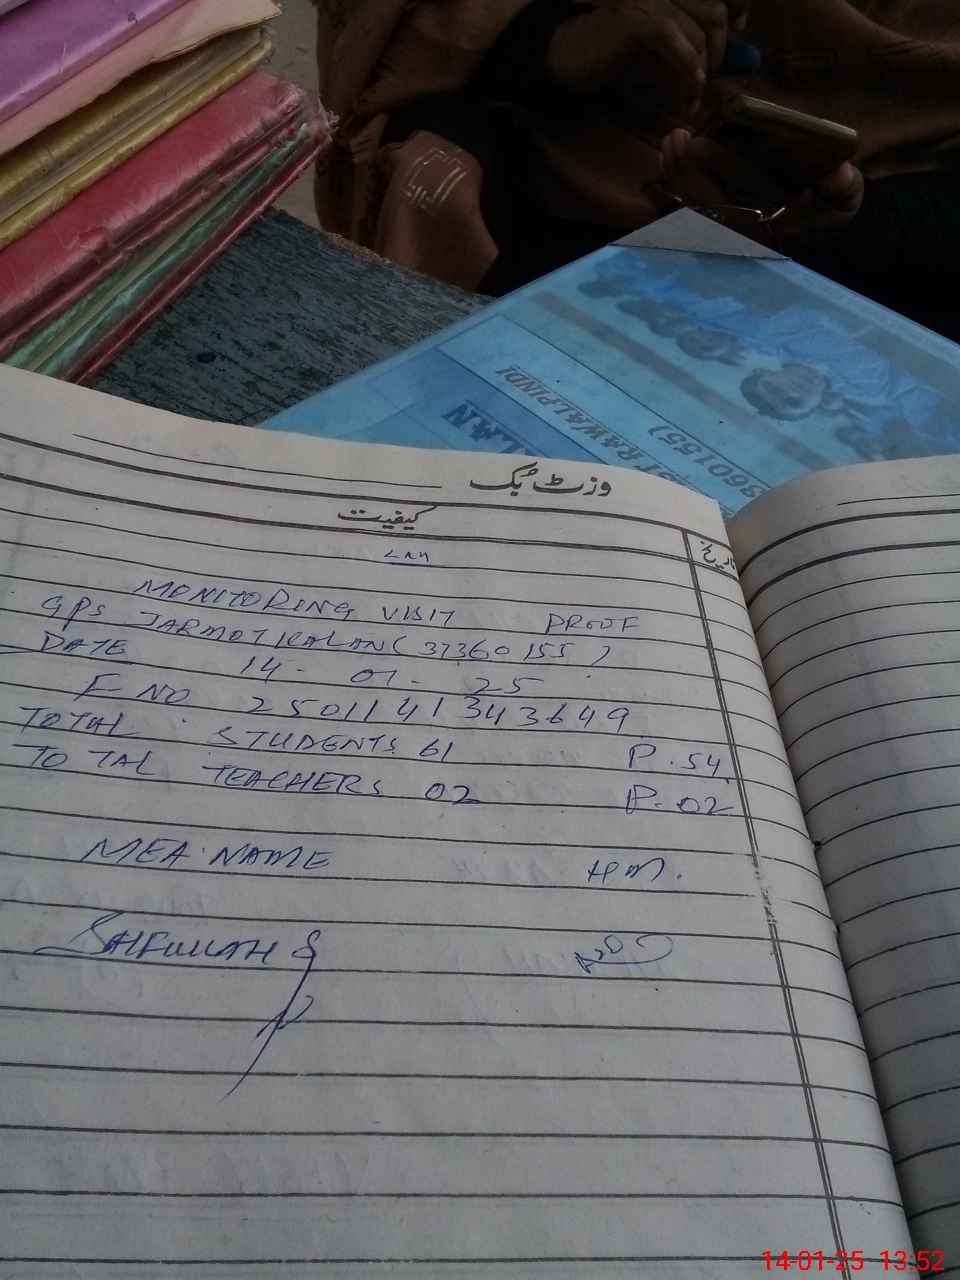 ALAN
RAWALPINDI
360155)
وزٹ بک
کیفیت
تاریخ
MONITORING VISIT PROOF
GPS JARMOT KALAN (37360155)
DATE 14-01-25
F NO 2501141343649
TOTAL STUDENTS 61 P.54
TOTAL TEACHERS 02 P.02
MEA NAME H.M.
SAIFULLAH
14-01-25 13:52